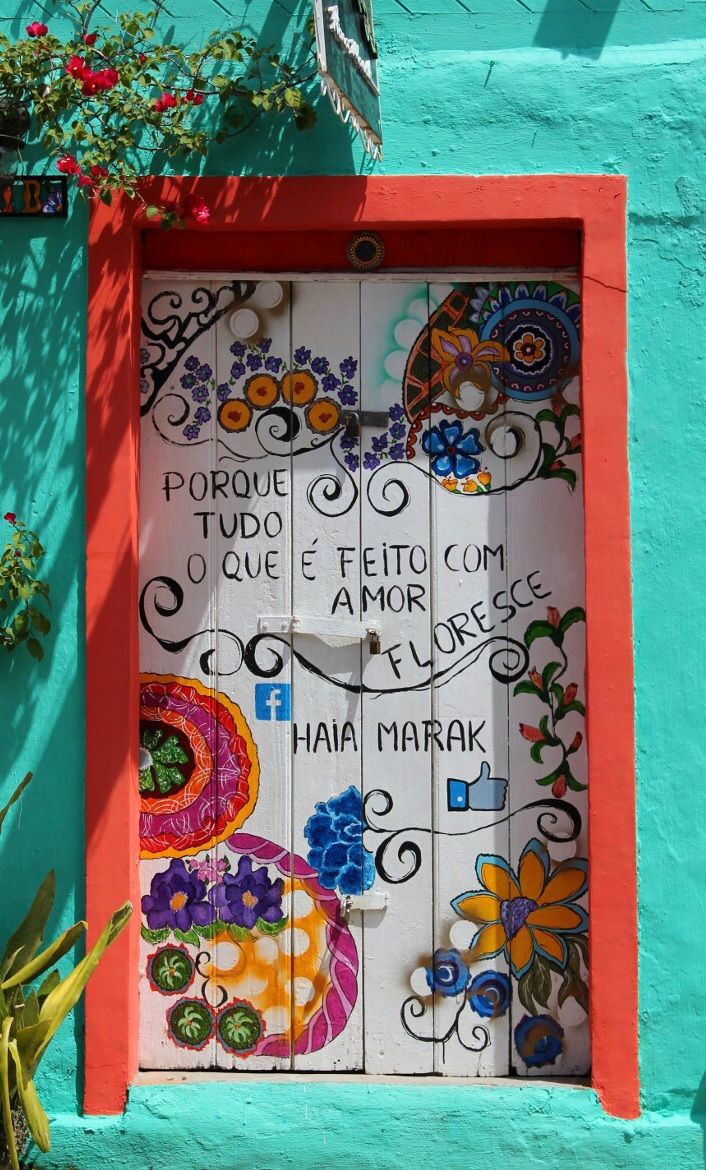 PORQUE
TUDO
O QUE É FEITO COM
AMOR
FLORESCE
f
HAIA MARRAK